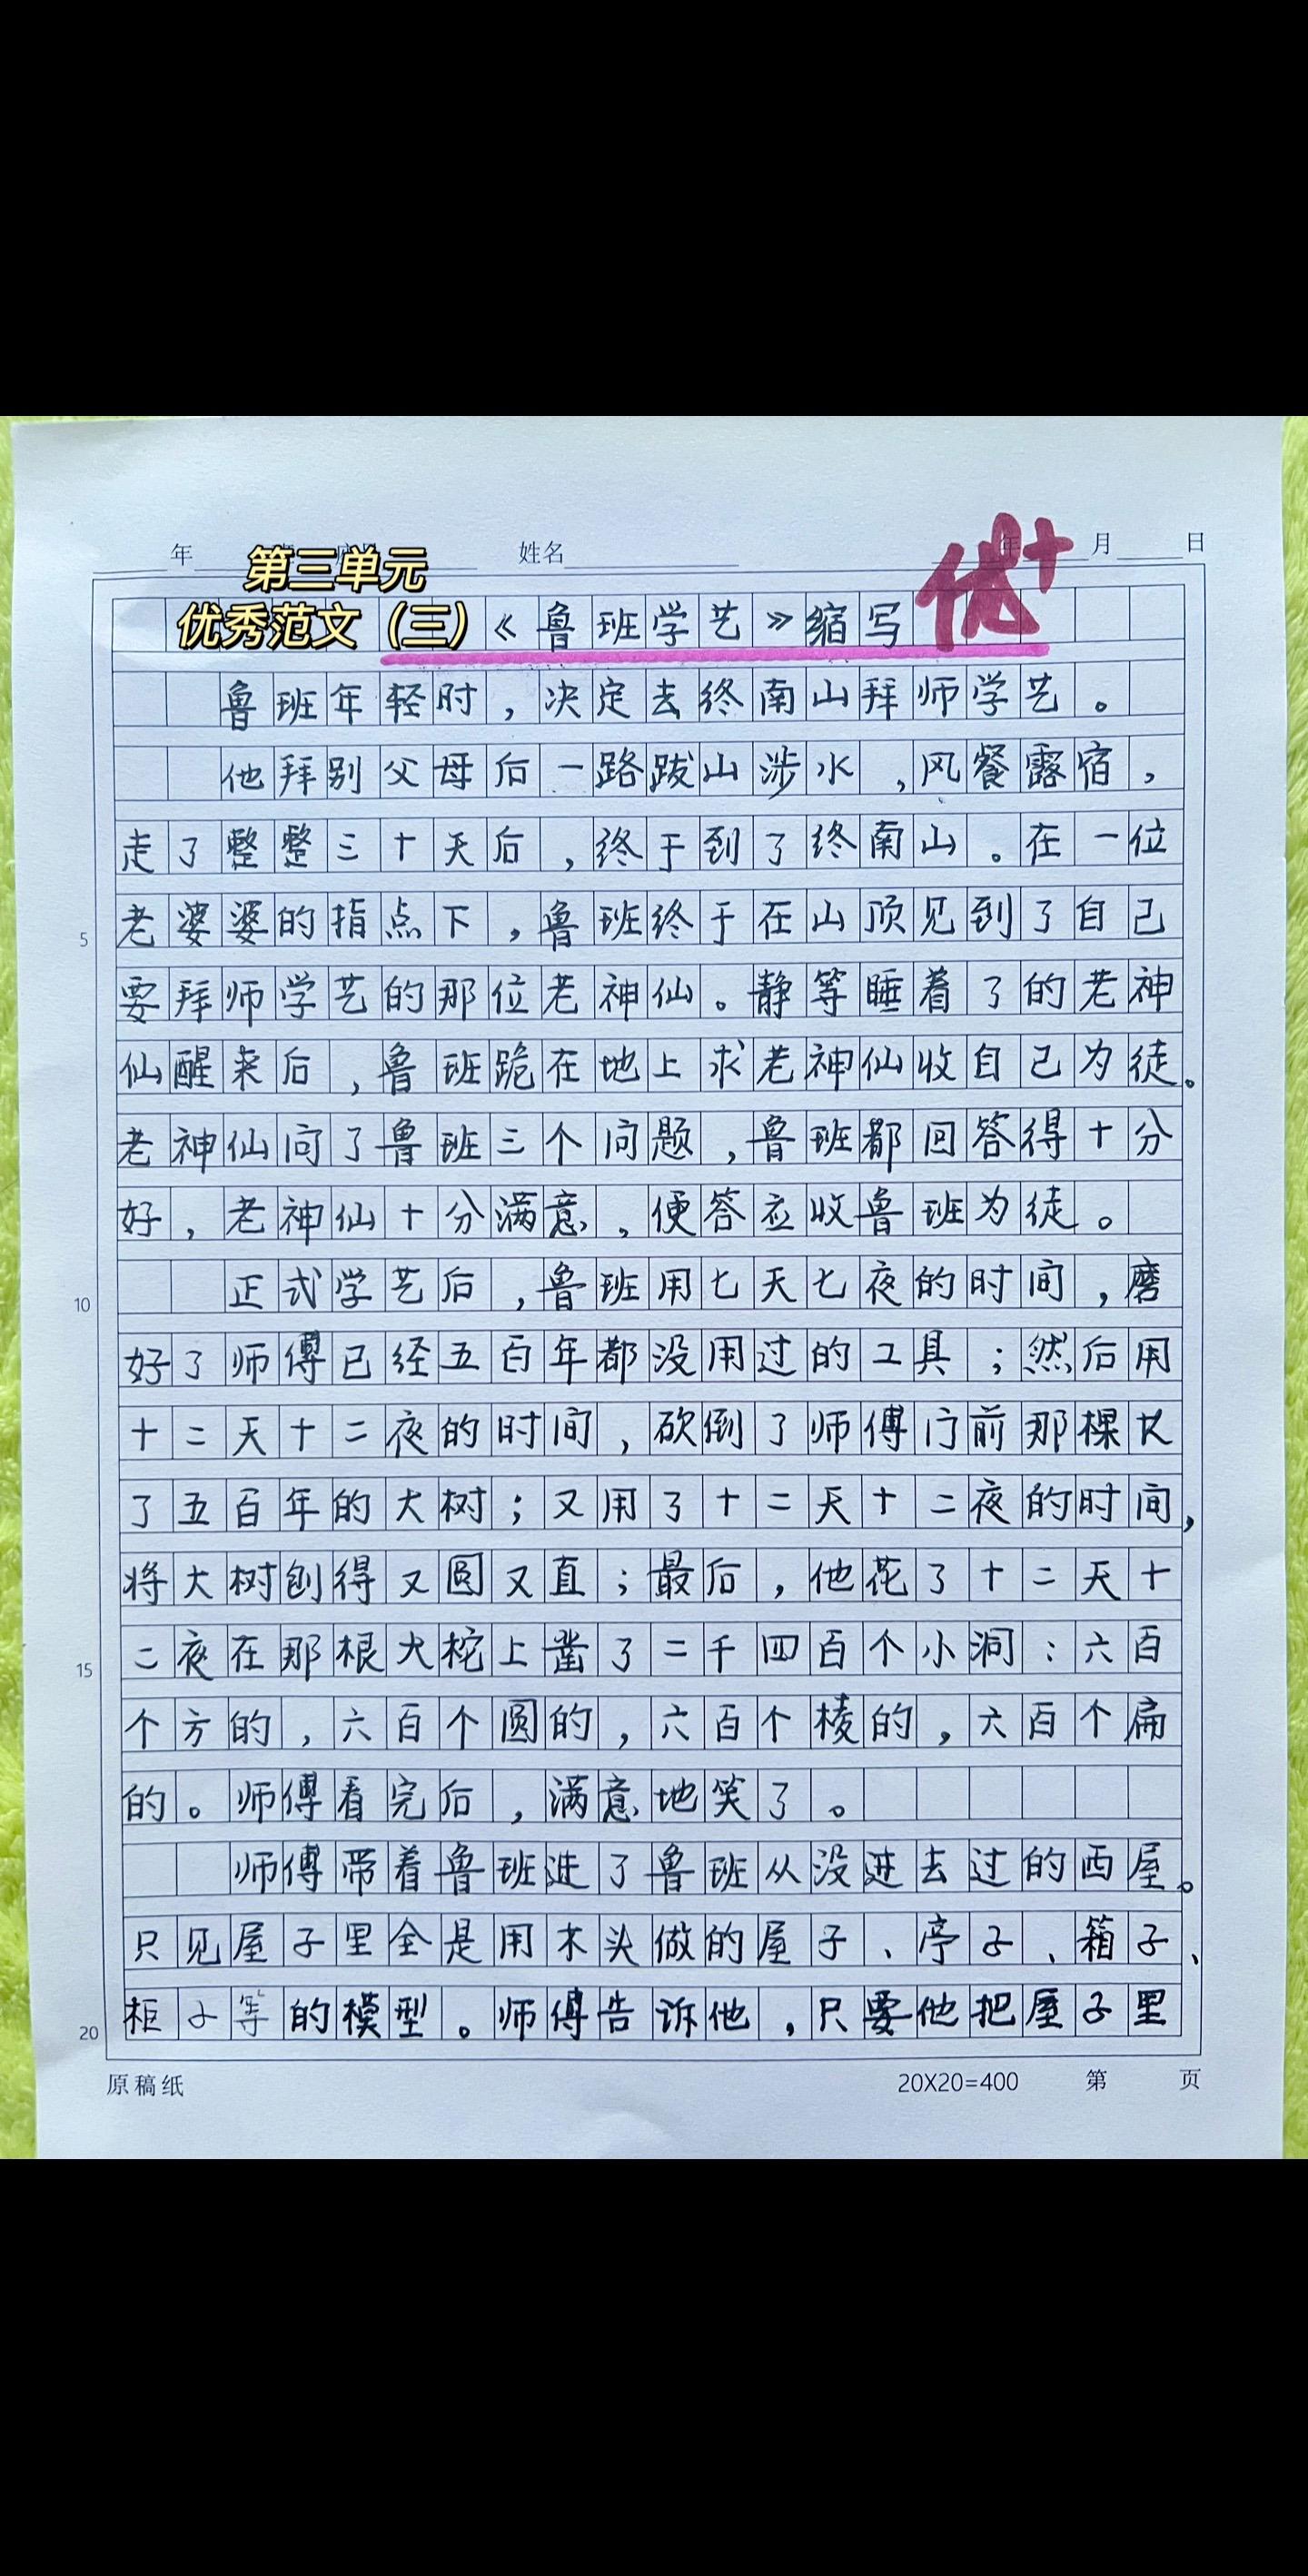 年 姓名 月 日
第三单元
优秀范文（三）《鲁班学艺》缩写 优+
鲁班年轻时，决定去终南山拜师学艺。
他拜别父母后一路跋山涉水，风餐露宿，
走了整整三十天后，终于到了终南山。在一位
5 老婆婆的指点下，鲁班终于在山顶见到了自己
要拜师学艺的那位老神仙。静等睡着了的老神
仙醒来后，鲁班跪在地上求老神仙收自己为徒。
老神仙问了鲁班三个问题，鲁班都回答得十分
好，老神仙十分满意，便答应收鲁班为徒。
10 正式学艺后，鲁班用七天七夜的时间，磨
好了师傅已经五百年都没用过的工具；然后用
十二天十二夜的时间，砍倒了师傅门前那棵长
了五百年的大树；又用了十二天十二夜的时间，
将大树刨得又圆又直；最后，他花了十二天十
15 二夜在那根大柁上凿了二千四百个小洞：六百
个方的，六百个圆的，六百个棱的，六百个扁
的。师傅看完后，满意地笑了。
师傅带着鲁班进了鲁班从没进去过的西屋。
只见屋子里全是用木头做的屋子、亭子、箱子、
20 柜子等的模型。师傅告诉他，只要他把屋子里
原稿纸 20X20=400 第 页